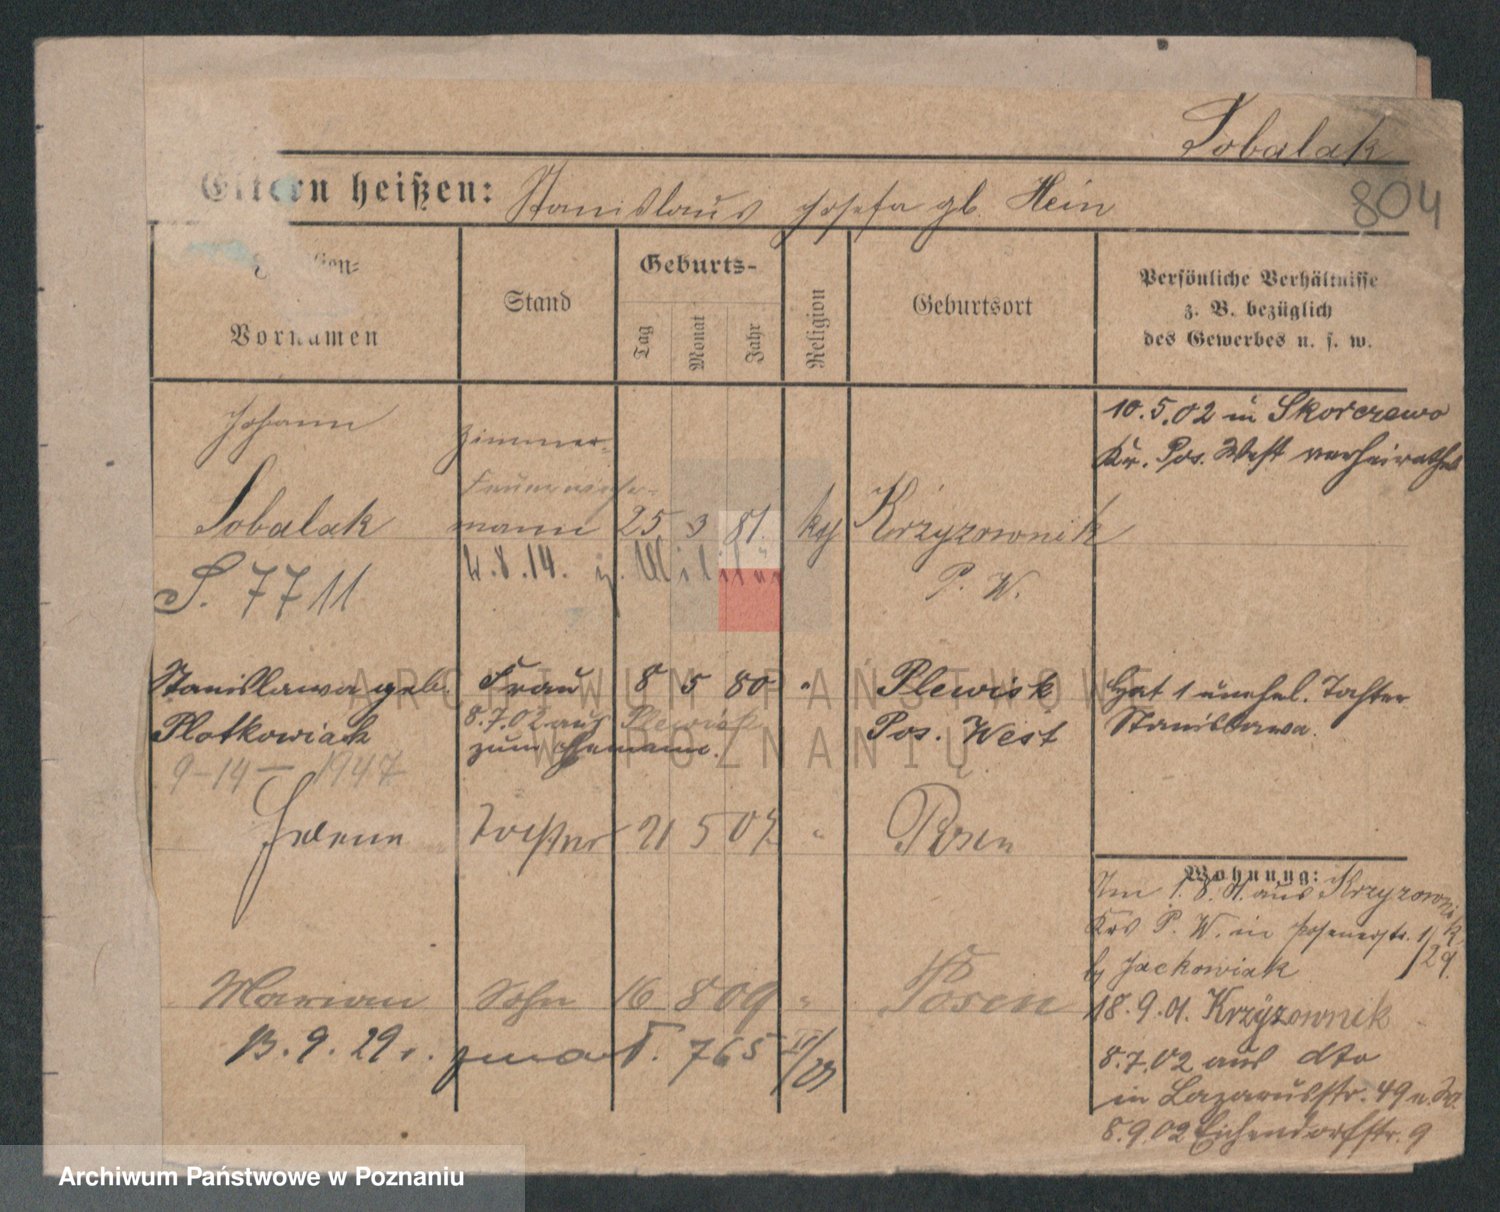 Sobalak
804
Eltern heißen: Stanislaus Josefa gb. Hein
Vornamen
Stand
Geburts-
Tag
Monat
Jahr
Religion
Geburtsort
Persönliche Verhältnisse
z. B. bezüglich
des Gewerbes u. s. w.
Johann
Zimmer-
10.5.02 in Skorzewo
Kr. Pos. West verheirathet
Sobalak mann 25 3 81. kg Krzyzownik
S. 7711
4.8.14. z. Militär
P. W.
Stanislawa geb. Frau 8 5 80 " Plewisk
Hat 1 unehel. Tochter
Plotkowiak 8.7.02 aus Plewisk Pos. West
Stanislawa.
zum Ehemann.
9-14- 1947
Helene Tochter 21 5 07 " Posen
Wohnung:
Am 1. 8. 01. aus Krzyzownik
Krs P. W. in Posenerstr. 1/29.
by Jackowiak
Marian Sohn 16 8 09 " Posen
18.9.01. Krzyzownik
13.9.29 r. zmarł. 765 IV/29
8.7.02 aus dto
in Lazarusstr. 49
8.9.02 Eichendorfstr. 9
ARCHIWUM PAŃSTWOWE
W POZNANIU
Archiwum Państwowe w Poznaniu